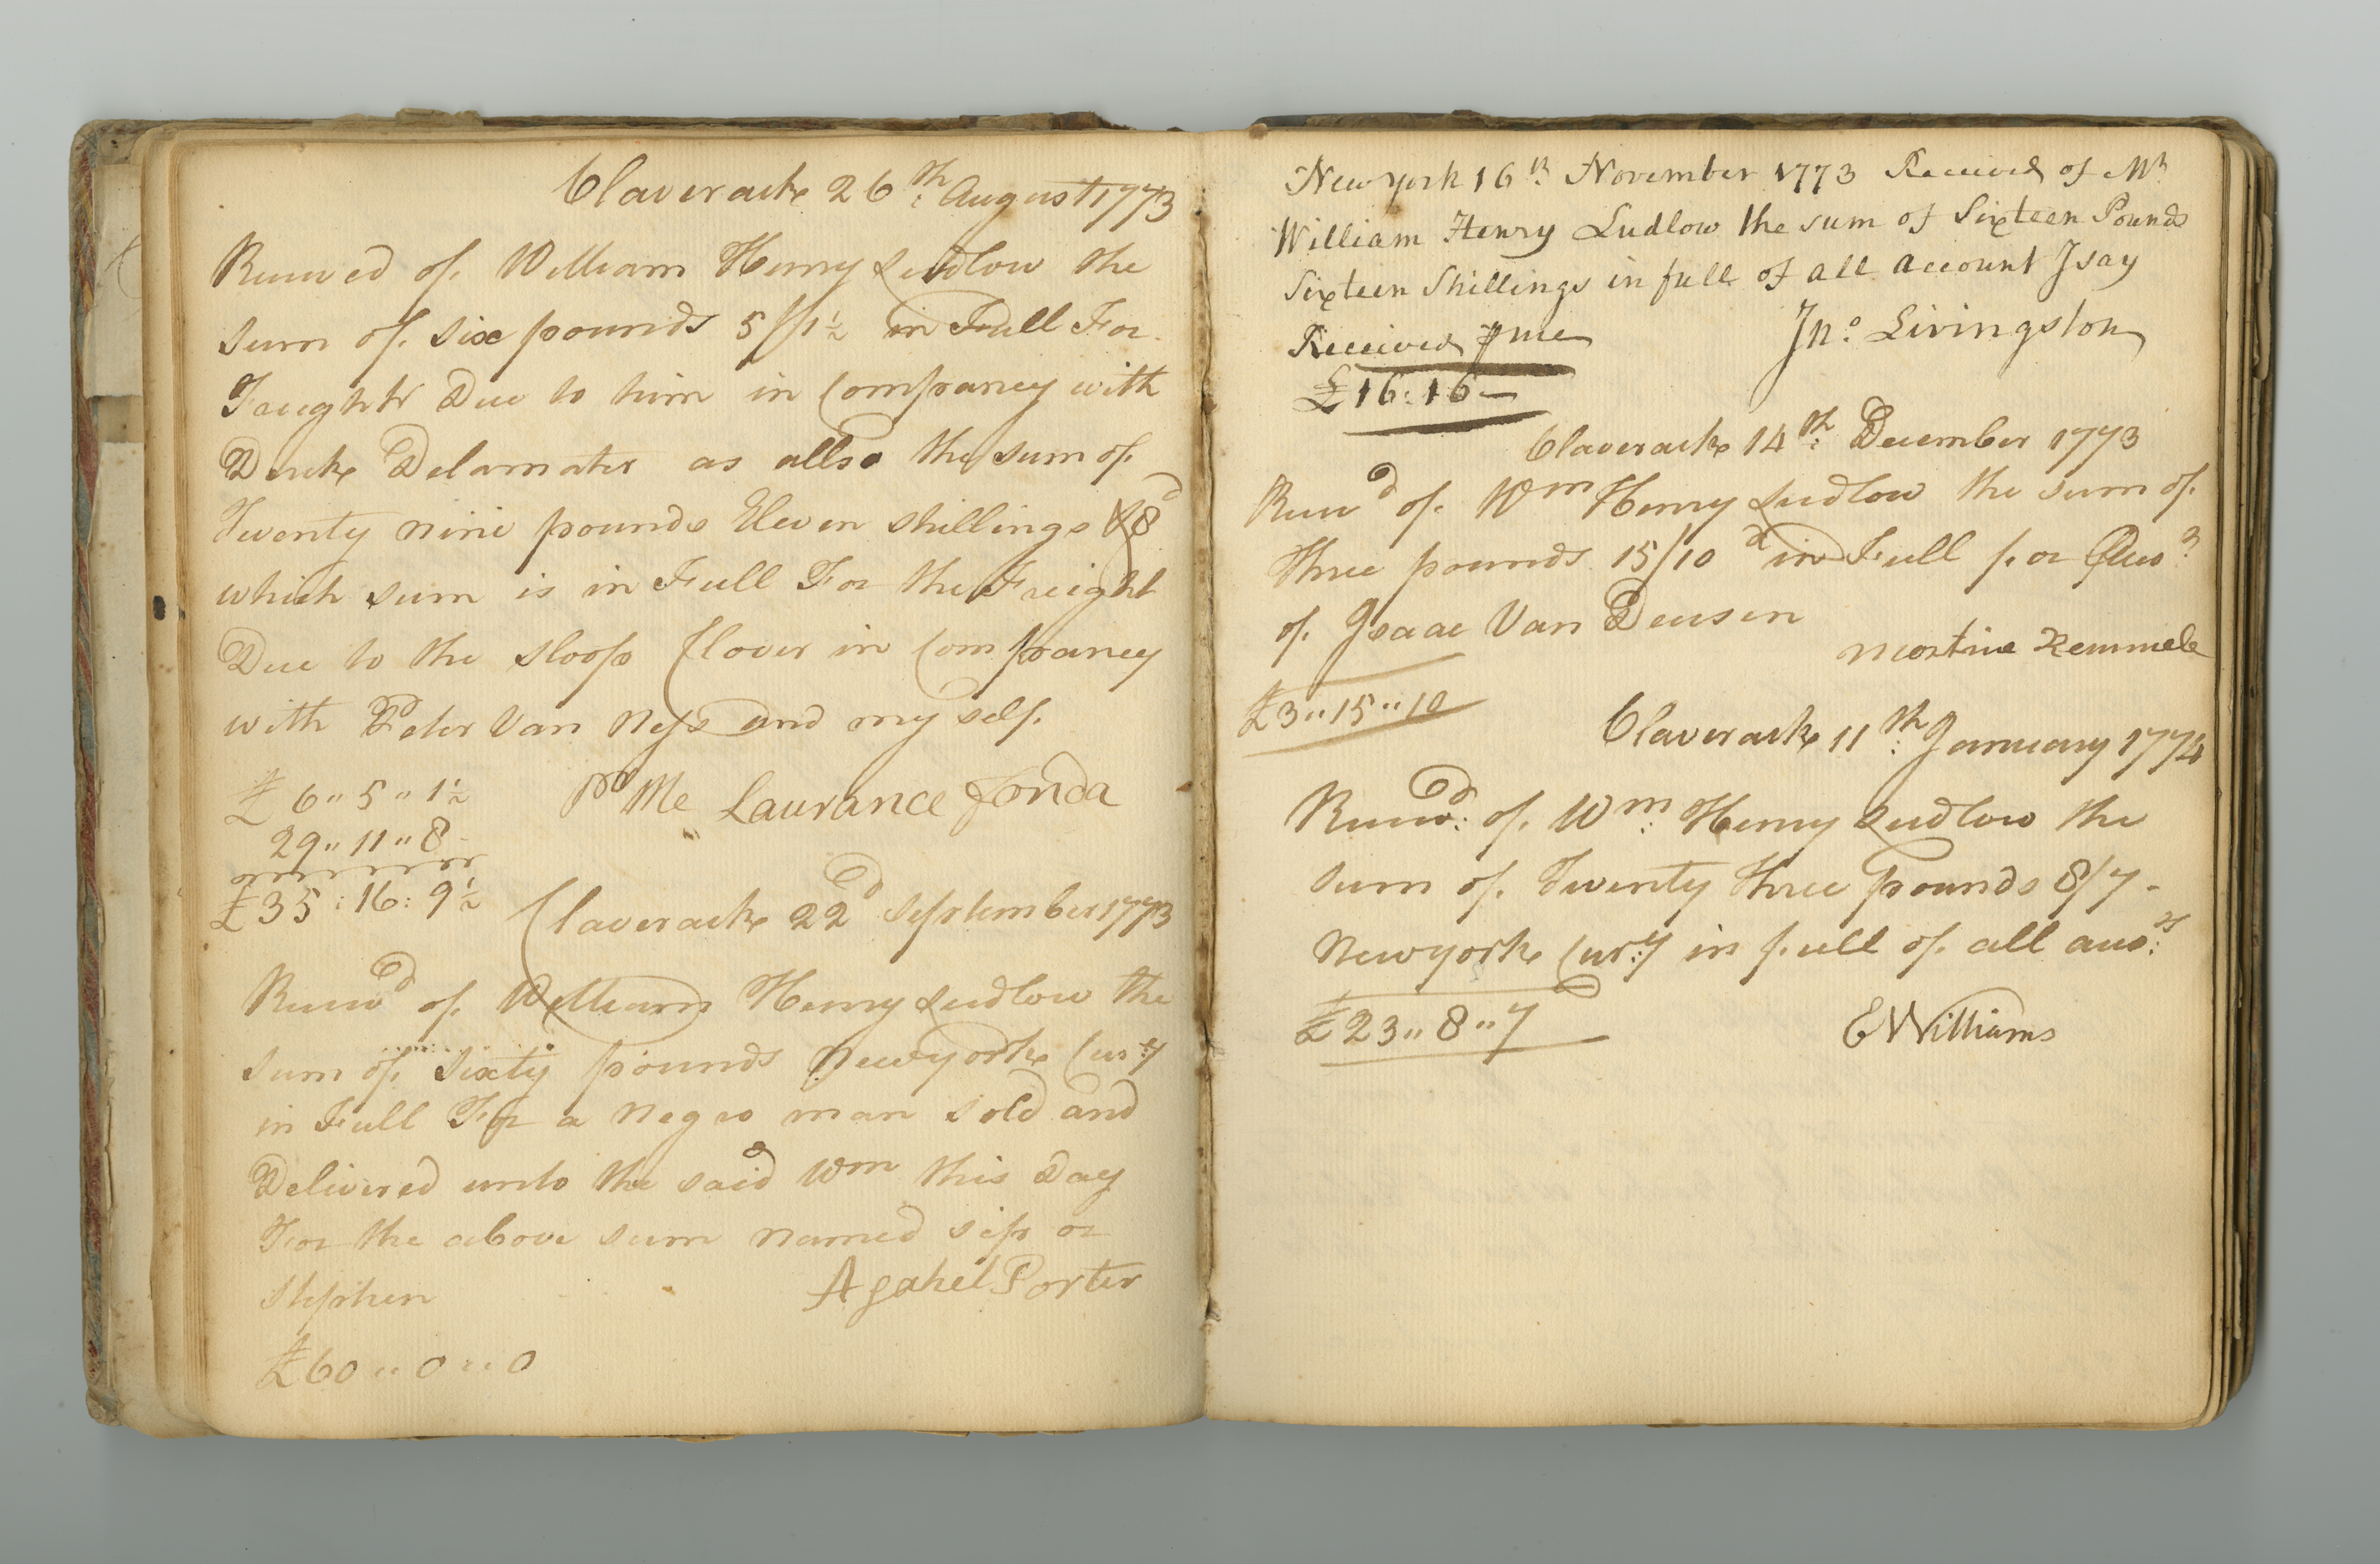 Claverack 26th August 1773
Received of William Henry Ludlow the
sum of six pounds 5/1½ in Full For
Freight Due to him in Compancy with
Derick Delamater as allso the sum of
Twenty nine pounds Eleven shillings & 8d
which sum is in Full For the Freight
Due to the sloop Clover in Compancy
with Peter Van Ness and my self.
£6"5"1½ Pr Me Laurance Fonda
29"11"8
£35:16:9½
Claverack 22d September 1773
Receivd of William Henry Ludlow the
sum of sixty pounds Newyork Curry
in Full For a Negro man sold and
Delivered unto the said Wm this Day
For the above sum named sip or
Stephen Asahel Porter
£60"0"0
New york 16th November 1773 Received of Mr
William Henry Ludlow the sum of Sixteen Pounds
Sixteen Shillings in full of all account I say
Received ⅌ me Jno. Livingston
£16:16—
Claverack 14th December 1773
Receivd of Wm Henry Ludlow the sum of
three pounds 15/10d in Full for
of Isaac Van Deusen
£3"15"10
Claverack 11th January 1774
Receivd: of Wm: Henry Ludlow the
sum of Twenty three pounds 8/7-
Newyork Curry in full of all accots
£23"8"7 E Williams